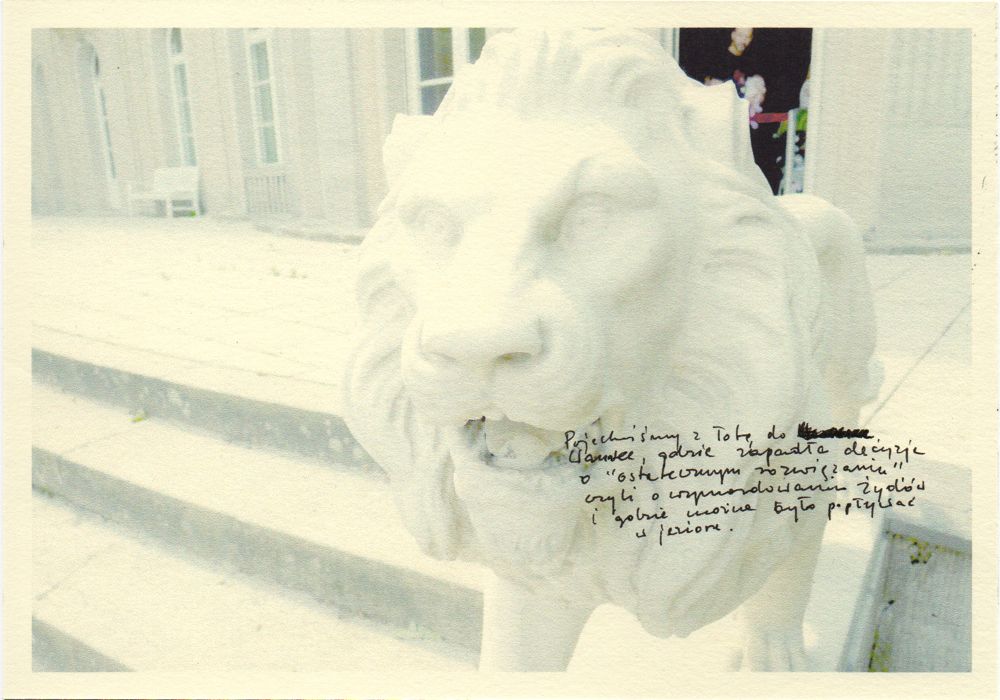 Pojechaliśmy z Totą do
Wannsee, gdzie zapadła decyzja
o "ostatecznym rozwiązaniu"
czyli o wymordowaniu Żydów
i gdzie można było popływać
w jeziorze.